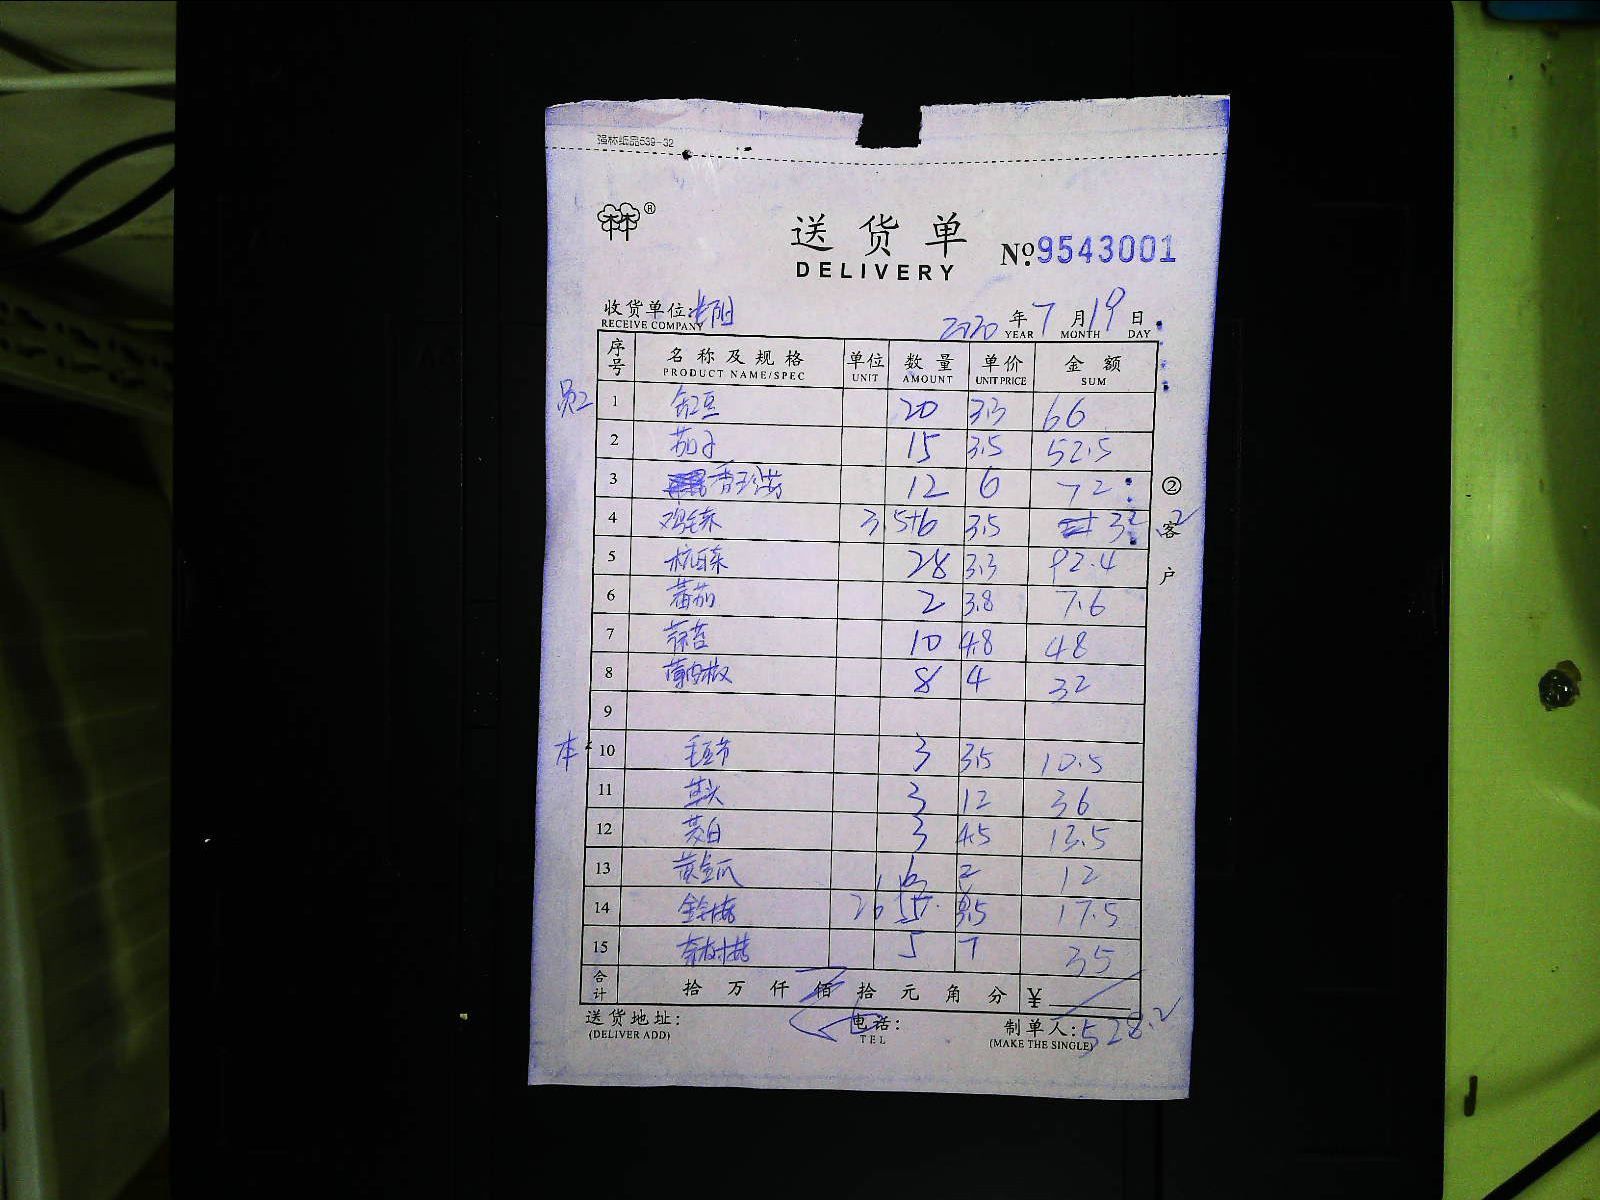 强林纸品539-32
林林®
送货单
DELIVERY
No.9543001
收货单位: 阳
RECEIVE COMPANY
2020 年 7 月 19 日
YEAR MONTH DAY
序号 名称及规格 单位 数量 单价 金额
PRODUCT NAME/SPEC UNIT AMOUNT UNIT PRICE SUM
员工 1 缸豆 20 3.3 66
2 茄子 15 3.5 52.5
3 香 菇 12 6 72
4 鸡毛菜 3.5 32.2
5 杭白菜 28 3.3 92.4
6 蕃茄 2 3.8 7.6
7 10 4.8 48
8 薄皮椒 8 4 32
9
本 10 毛豆节 3 3.5 10.5
11 3 12 36
12 茭白 3 4.5 13.5
13 黄金瓜 6 2 12
14 金针菇 5 3.5 17.5
15 茶树菇 5 7 35
合计 拾 万 仟 佰 拾 元 角 分 ¥
送货地址: 电话: 制单人: 528.2
(DELIVER ADD) TEL (MAKE THE SINGLE)
②客户